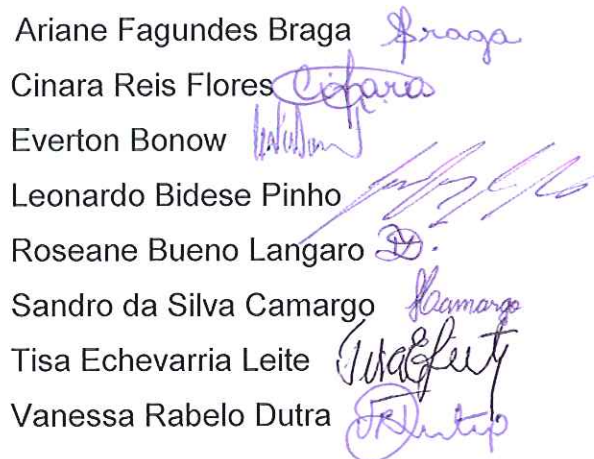 Ariane Fagundes Braga Braga
Cinara Reis Flores Cinara
Everton Bonow
Leonardo Bidese Pinho
Roseane Bueno Langaro
Sandro da Silva Camargo SCamargo
Tisa Echevarria Leite TisaELeite
Vanessa Rabelo Dutra